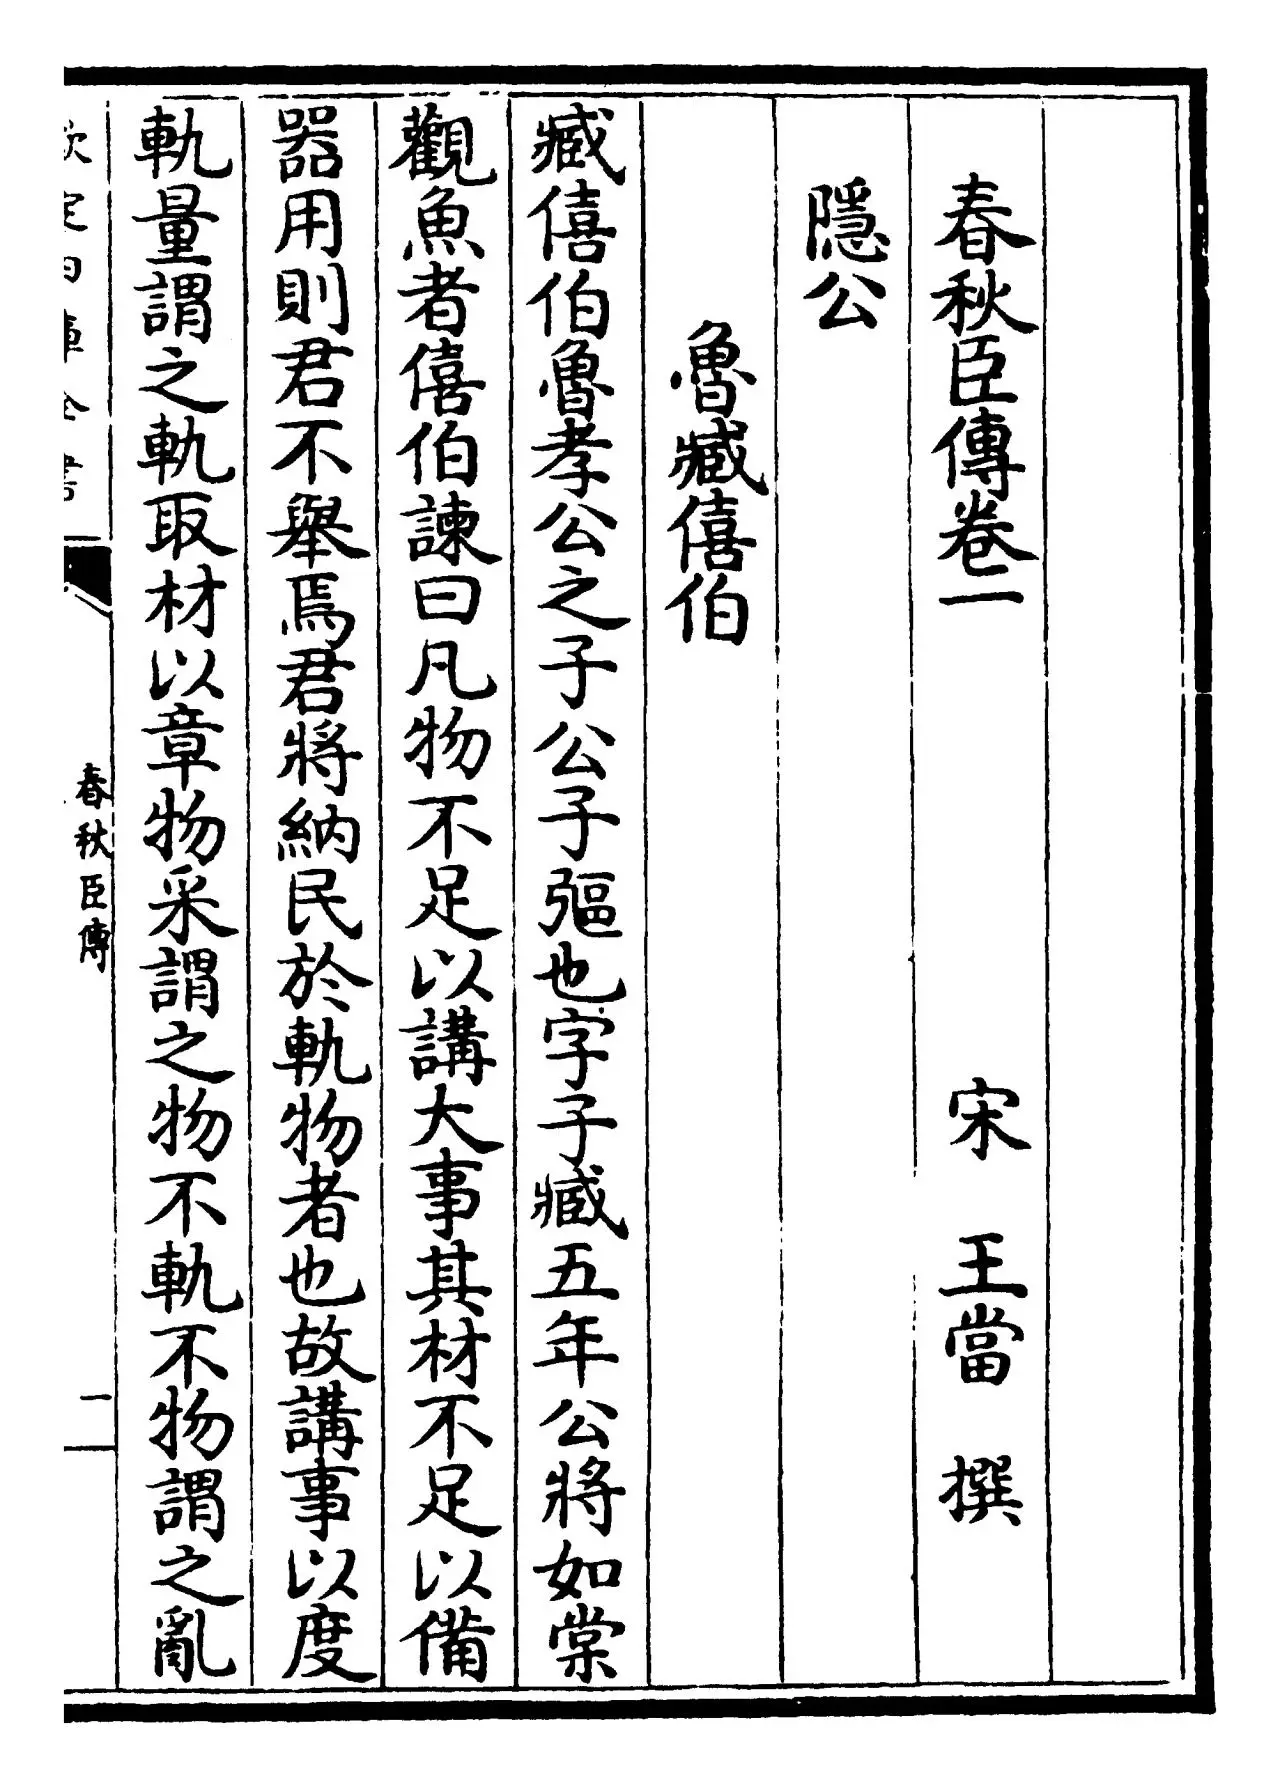 春秋臣傳卷一　宋　王當　撰
隱公
魯臧僖伯
臧僖伯魯孝公之子公子彄也字子臧五年公將如棠
觀魚者僖伯諫曰凡物不足以講大事其材不足以備
器用則君不舉焉君將納民於軌物者也故講事以度
軌量謂之軌取材以章物采謂之物不軌不物謂之亂
欽定四庫全書
春秋臣傳
一